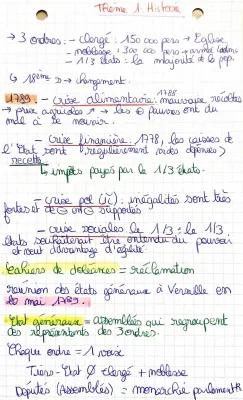 Thème 1: Histoire
→ 3 ordres: - Clergé: 150 000 pers → Eglise
- noblesse: 300 000 pers →
- 1/3 états: la majorité de la pop.
↳ 18ème → changement.
1789 - crise alimentaire: 1788 mauvaise récoltes
→ prix agricoles ↗ → les pauvres ont du
mal à se nourrir.
- Crise financière: 1778, les caisses de
l'Etat sont régulièrement vides (dépenses >
recette
↳ impôts payés par le 1/3 état.
- crise pol (XIX): inégalités sont très
fortes et de ⊖ en ⊖ supportés
- crise sociales le 1/3: le 1/3
états souhaiterait être entendu du pouvoir
et veut d'avantage d'égalité
Cahiers de doléances = réclamation
reunion des états généraux à Versaille en
mai 1789.
Etat généraux = assemblées qui regroupent
des représentents des 3 ordres.
Chaque ordre = 1 voix
Tiers-Etat ∅ clergé + noblesse
Députés (Assemblées) = monarchie